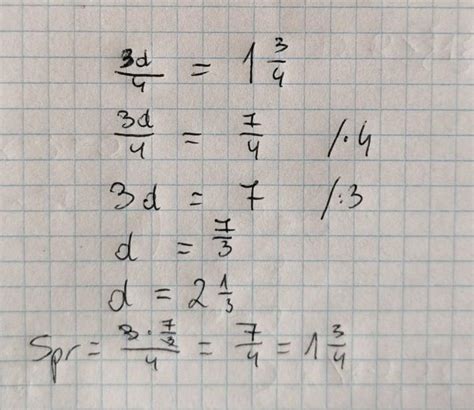 3d/4 = 1 3/4
3d/4 = 7/4 /·4
3d = 7 /:3
d = 7/3
d = 2 1/3
Spr = 3·7/3/4 = 7/4 = 1 3/4